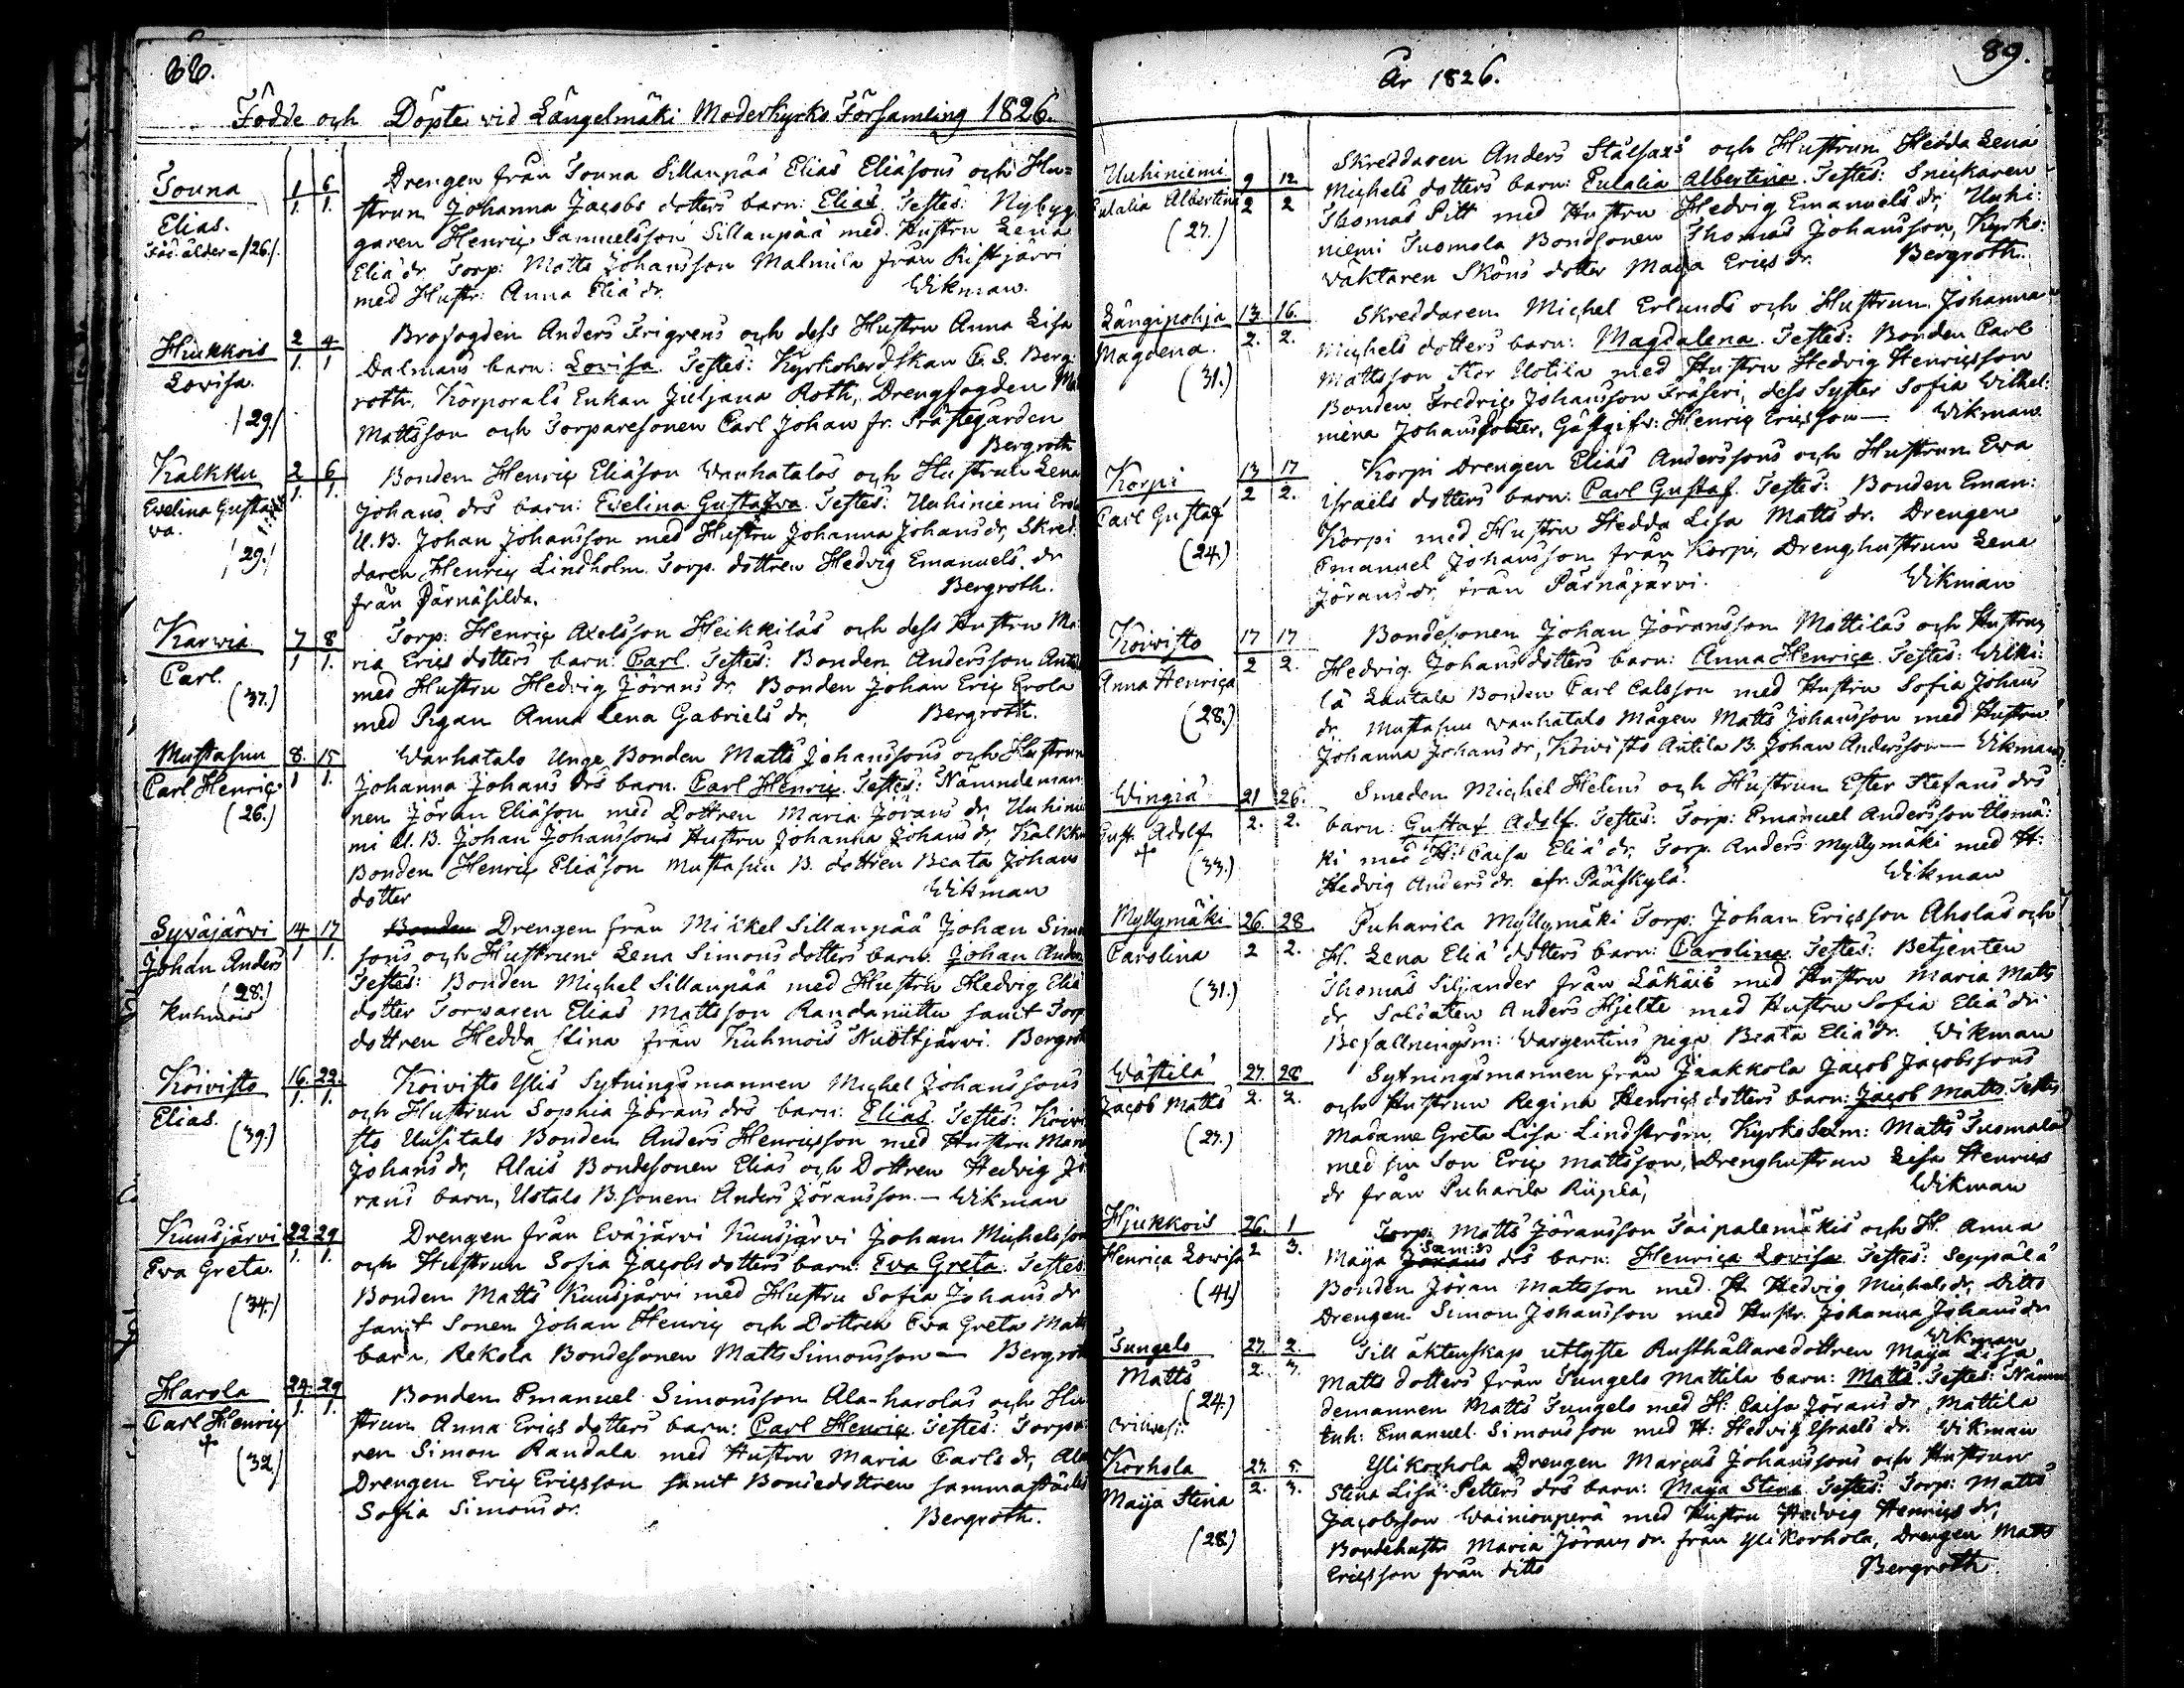 88.
Födde och Döpte vid Längelmäki Moderkyrko Församling 1826.
Jouna
Elias.
Föd. ålder = /26/.
1 6
1. 1.
Drengen från Jouna Sillanpää Elias Eliæsons och Hu=
strun Johanna Jacobs dotters barn: Elias. Testes: Nybyg
garen Henric Samuelsson Sillanpää med Hustru Lena
Eliæ dr. Torp: Matts Johansson Malmila från Ristjärvi
med Hustr: Anna Eliæ dr. Wikman.
Hiukkois
Lovisa.
/29/
2 4
1. 1
Brofogden Anders Frigrens och dess Hustru Anna Lisa
Dalmans barn: Lovisa. Testes: Kyrkoherdskan C. S. Berg:
roth, Korporals Enkan Juljana Roth, Drengfogden
Mattsson och Torparesonen Carl Johan fr. Prästegården
Bergroth
Kalkku
Evelina Gusta
va.
/29./
2 6
1. 1.
Bonden Henric Eliæson Wanhatalos och Hustrun Lena
Johans drs barn: Evelina Gustafva. Testes: Uuhiniemi
U.B. Johan Johansson med Hustru Johanna Johans dr, Skred:
daren Henric Lindholm. Torp. dottren Hedvig Emanuels dr
från Pärnäsilda. Bergroth.
Karwia
Carl.
(37.)
7 8
1 1.
Torp: Henric Axelsson Heikkiläs och dess Hustru Ma:
ria Erics dotters barn: Carl. Testes: Bonden Andersson
med Hustru Hedvig Jörans dr. Bonden Johan Eric Erola
med Pigan Anna Lena Gabriels dr. Bergroth.
Mustasuu
Carl Henric
(26.)
8. 15
1 1.
Wanhatalo Unge Bonden Matts Johanssons och Hustrun
Johanna Johans drs barn. Carl Henric. Testes: Nämndeman
nen Jöran Eliæson med Dottren Maria Jörans dr, Uuhinie
mi U.B. Johan Johanssons Hustru Johanna Johans dr, Kalkku
Bonden Henric Eliæson Mustasuu B. dottren Beata Johans
dotter Wikman
Syväjärvi
Johan Anders
(28.)
Kuhmois
14 17
1 1.
Bonden Drengen från Mickel Sillanpää Johan
sons och Hustrun Lena Simons dotters barn: Johan
Testes: Bonden Michel Sillanpää med Hustru Hedvig Eliæ
dotter Torwaren Elias Mattsson Randaniittu samt Torp
dottren Hedda Stina från Kuhmois Bergroth
Koivisto
Elias.
(39.)
16. 22.
1. 1.
Koivisto Ylis Sytningsmannen Michel Johanssons
och Hustrun Sophia Jörans drs barn: Elias. Testes: Koivi
sto Uusitalo Bonden Anders Henricsson med Hustru
Johans dr, Alais Bondesonen Elias och Dottren Hedvig Jö
rans barn, Uotalo B. sonen Anders Jöransson. — Wikman
Kuusjärvi
Eva Greta
(34.)
22 29
1. 1.
Drengen från Eväjärvi Kuusjärvi Johan Michelsson
och Hustrun Sofia Jacobs dotters barn: Eva Greta. Testes
Bonden Matts Kuusjärvi med Hustru Sofia Johans dr
samt Sonen Johan Henric och Dottren Eva Greta Matts
barn, Rekola Bondesonen Matts Simonsson — Bergroth
Harola
Carl Henric
+
(32.)
24. 29
1. 1.
Bonden Emanuel Simonsson Ala-harolas och Hu
strun Anna Erics dotters barn: Carl Henric. Testes: Torpa
ren Simon Randala med Hustru Maria Carls dr,
Drengen Eric Ericsson samt Bondedottren sammastädes
Sofia Simons dr. Bergroth.
89.
År 1826.
Uuhiniemi
Eulalia Albertina
(27.)
9 12.
2 2
Skreddaren Anders och Hustrun Hedda Lena
Michels dotters barn: Eulalia Albertina. Testes: Snickaren
Thomas Pitt med Hustru Hedvig Emanuels dr, Uuhi:
niemi Tuomola Bondsonen Thomas Johansson, Kyrko:
väktaren Sköns dotter Maja Erics dr. Bergroth.
Längipohja
Magdena.
(31.)
13. 16.
2. 2.
Skreddaren Michel Erlunds och Hustrun Johanna
Michels dotters barn: Magdalena. Testes: Bonden Carl
Mattsson Stor Uotila med Hustru Hedvig Henricsson
Bonden Fredric Johansson Fräseri, dess Syster Sofia Wilhel:
mina Johansdotter, Gästgifv: Henric Ericsson — Wikman
Korpi
Carl Gustaf
(24.)
13 17
2 2.
Korpi Drengen Elias Anderssons och Hustrun Eva
Israels dotters barn: Carl Gustaf. Testes: Bonden Eman:
Korpi med Hustru Hedda Lisa Matts dr. Drengen
Emanuel Johansson från Korpi, Drenghustrun Lena
Jörans dr, från Pärnäjärvi. Wikman
Koivisto
Anna Henrica
(28.)
17 17
2 2.
Bondesonen Johan Jöransson Mattilas och Hustrun
Hedvig Johans dotters barn: Anna Henrica. Testes: Wilki:
lä Lautala Bonden Carl Calsson med Hustru Sofia Johans
dr, Mustasuu Wanhatalo Mågen Matts Johansson med Hustru
Johanna Johans dr, Koivisto Antila B. Johan Andersson — Wikman.
Wingiä
Gust. Adolf
+
(33.)
21 26.
2. 2.
Smeden Michel Helens och Hustrun Ester Stefans drs
barn: Gustaf Adolf. Testes: Torp: Emanuel Andersson
ki med H: Caisa Eliæ dr. Torp. Anders Myllymäki med H:
Hedvig Anders dr. Wikman
Myllymäki
Carolina
(31.)
26. 28
2 2.
Puharila Myllymäki Torp: Johan Ericsson Aholas och
H. Lena Eliæ dotters barn: Carolina. Testes: Betjenten
Thomas Siljander från Läkäis med Hustru Maria Matts
dr, Soldaten Anders Hjelte med Hustru Sofia Eliæ dr
Befallningsm: Wargentins piga Beata Eliæ dr. Wikman
Wästilä
Jacob Matts
(27.)
27. 28
2. 2.
Sytningsmannen från Jaakkola Jacob Jacobssons
och Hustrun Regina Henrics dotters barn: Jacob Matts. Testes
Madame Greta Lisa Lindström, Kyrko Sexm: Matts Tuomala
med sin Son Eric Mattsson, Drenghustrun Lisa Henrics
dr från Puharila Wikman
Hjukkois
Henrica Lovisa
(41.)
26. 1
2 3.
Torp: Matts Jöransson Taipalemäkis och H. Anna
Maja Jörans Sam:s drs barn: Henrica Lovisa. Testes: Seppälä
Bonden Jöran Mattsson med H. Hedvig Michels dr, Ditto
Drengen Simon Johansson med Hustr. Johanna Johans dr
Wikman
Sungelo
Matts
(24.)
Orivesi:
27. 2.
2. 3.
Till äktenskap utlyste Rusthållaredottren Maja Lisa
Matts dotters från Sungelo Mattila barn: Matts. Testes: Nämn
demannen Matts Sungelo med H: Caisa Jörans dr, Mattila
Emanuel Simonsson med H: Hedvig Israels dr. Wikman
Korhola
Maija Stena
(28.)
27. 5.
2. 3.
Ylikorhola Drengen Marcus Johanssons och Hustrun
Stina Lisa Petters drs barn: Maja Stina. Testes: Torp: Matts
Jacobsson Wainionperä med Hustru Hedvig Henrics dr,
Bondehustr Maria Jörans dr. från Ylikorhola, Drengen Matts
Ericsson från ditto Bergroth.